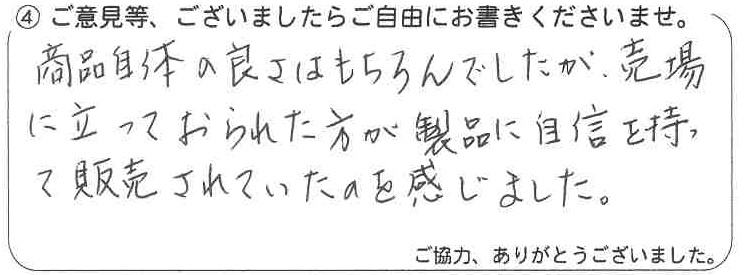 ④ ご意見等、ございましたらご自由にお書きくださいませ。
商品自体の良さはもちろんでしたが、売場
に立っておられた方が製品に自信を持っ
て販売されていたのを感じました。
ご協力、ありがとうございました。